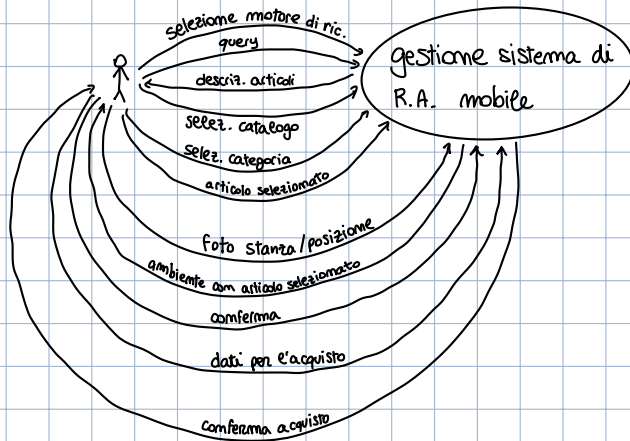 selezione motore di ric.
query
descriz. articoli
selez. catalogo
selez. categoria
articolo selezionato
foto stanza/posizione
ambiente con articolo selezionato
conferma
dati per l'acquisto
conferma acquisto
gestione sistema di
R.A. mobile